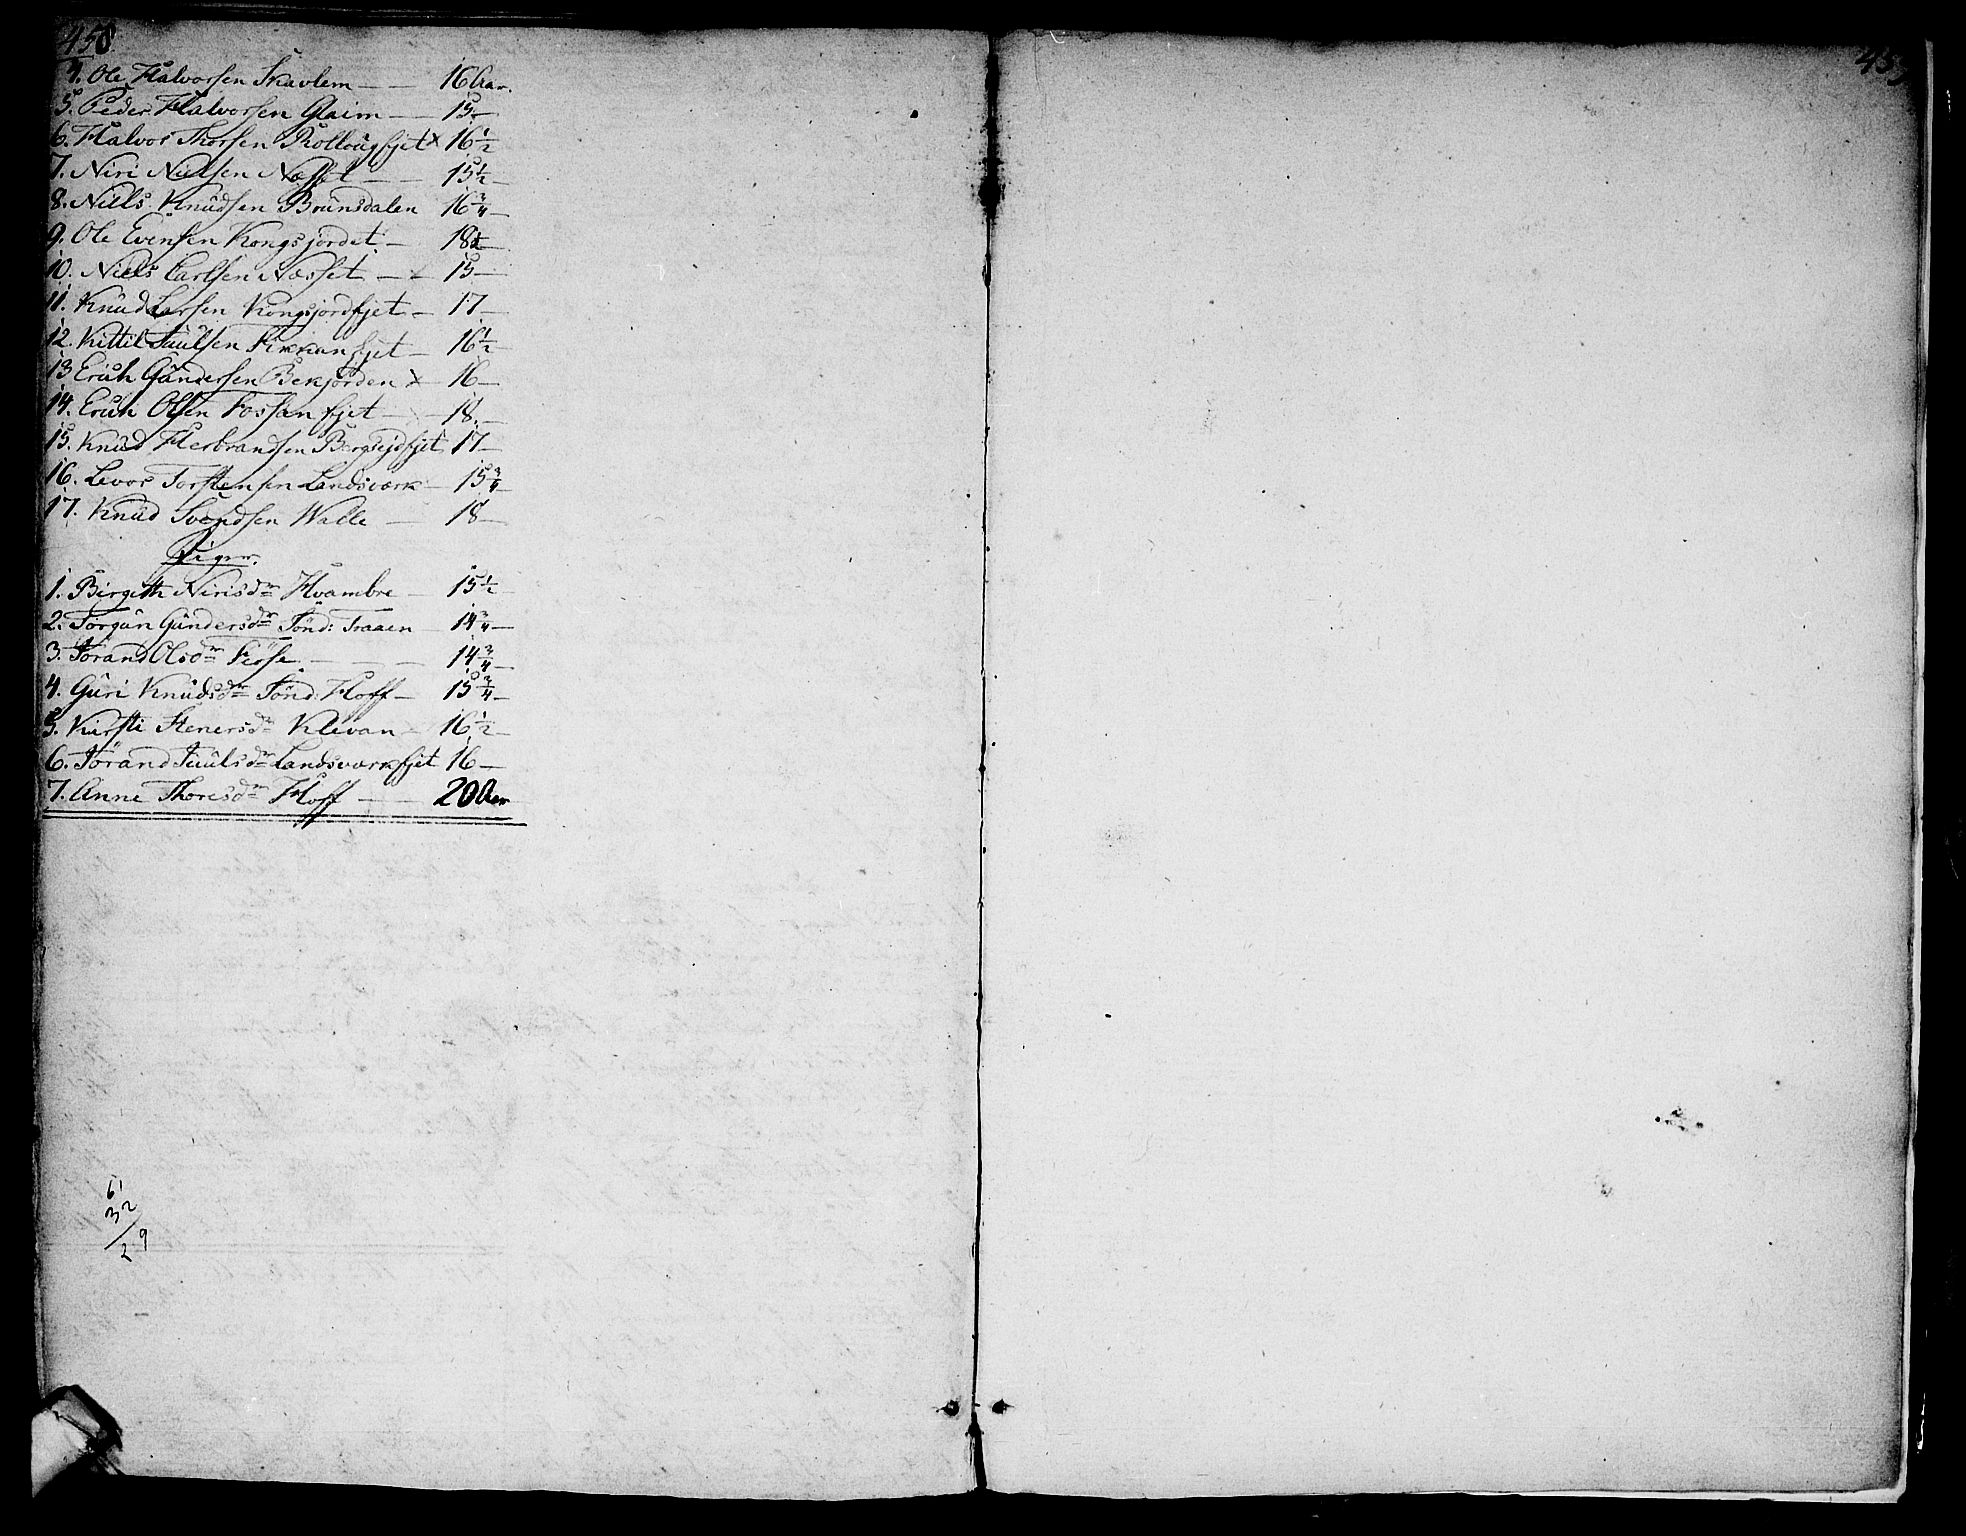 458
4. Ole Halvorsen Skavlem — — 16 Aar.
5. Peder Halvorsen Glaim — 15 —
6. Halvor Thorsen Rollougfjet x 16 1/2
7. Niri Nielsen Næsset — — 15 1/2 —
8. Niels Knudsen Brunsdalen 16 3/4 —
9. Ole Evensen Kongsjordet — 18 1/2 —
10. Niels Carlsen Næsset — x 15 —
11. Knud Larsen Kongsjordfjet — 17 —
12. Kittil Juulsen Fikkanfjet — 16 1/2 —
13 Erich Gundersen Bekjorden x 16 —
14. Erich Olsen Fossanfjet — 18. —
15. Knud Herbrandsen Bergsejdfjet 17 —
16. Levor Torstensen Landsværk — 15 3/4 —
17. Knud Svendsen Walle — 18 —
Piger.
1. Birgith Nirisdr Hvambre — 15 1/2 —
2. Torgun Gundersdr Sönd: Traaen — 14 3/4 —
3. Jorand Olsdr — — — 14 3/4 —
4. Guri Knudsdr Sönd: Hoff — 15 3/4 —
5. Kirsti Stenersdr Klevan — 16 1/2 —
6. Jörand Juulsdr Landsværkfjet 16 —
7. Anne Thoresdr Hoff — — 20 Aar
61
32
29